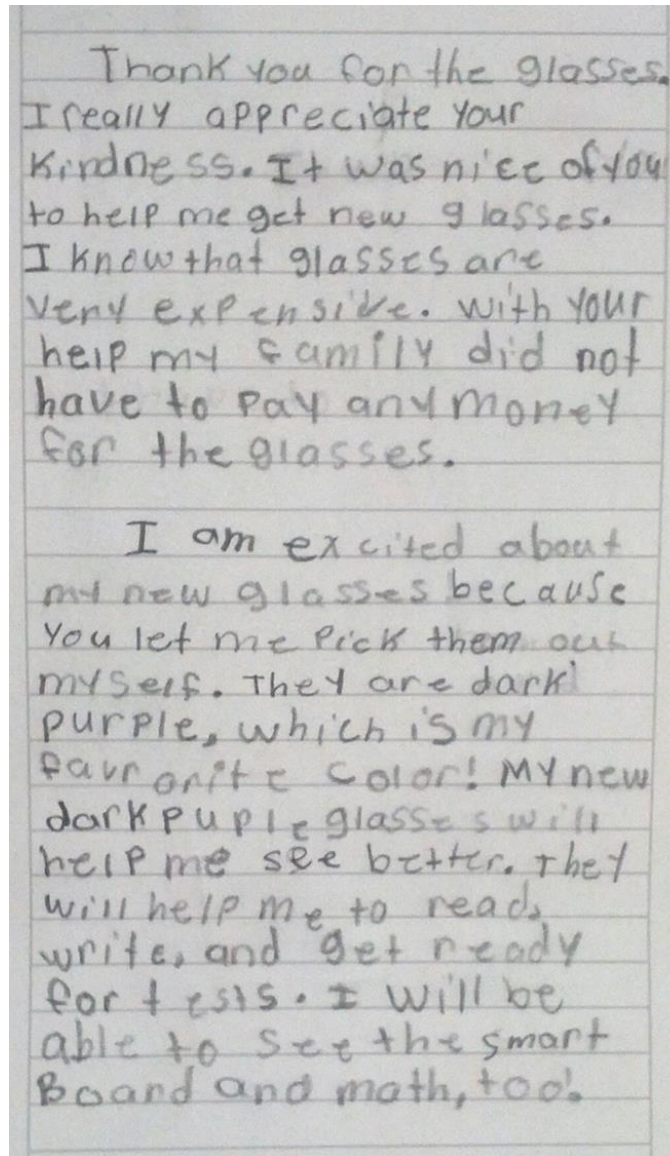 Thank you for the glasses.
I really appreciate your
kindness. It was nice of you
to help me get new glasses.
I know that glasses are
very expensive. With your
help my family did not
have to pay any money
for the glasses.
I am excited about
my new glasses because
you let me pick them out
myself. They are dark
purple, which is my
favrorite color! My new
dark puple glasses will
help me see better. They
will help me to read,
write, and get ready
for tests. I will be
able to see the smart
Board and math, too!